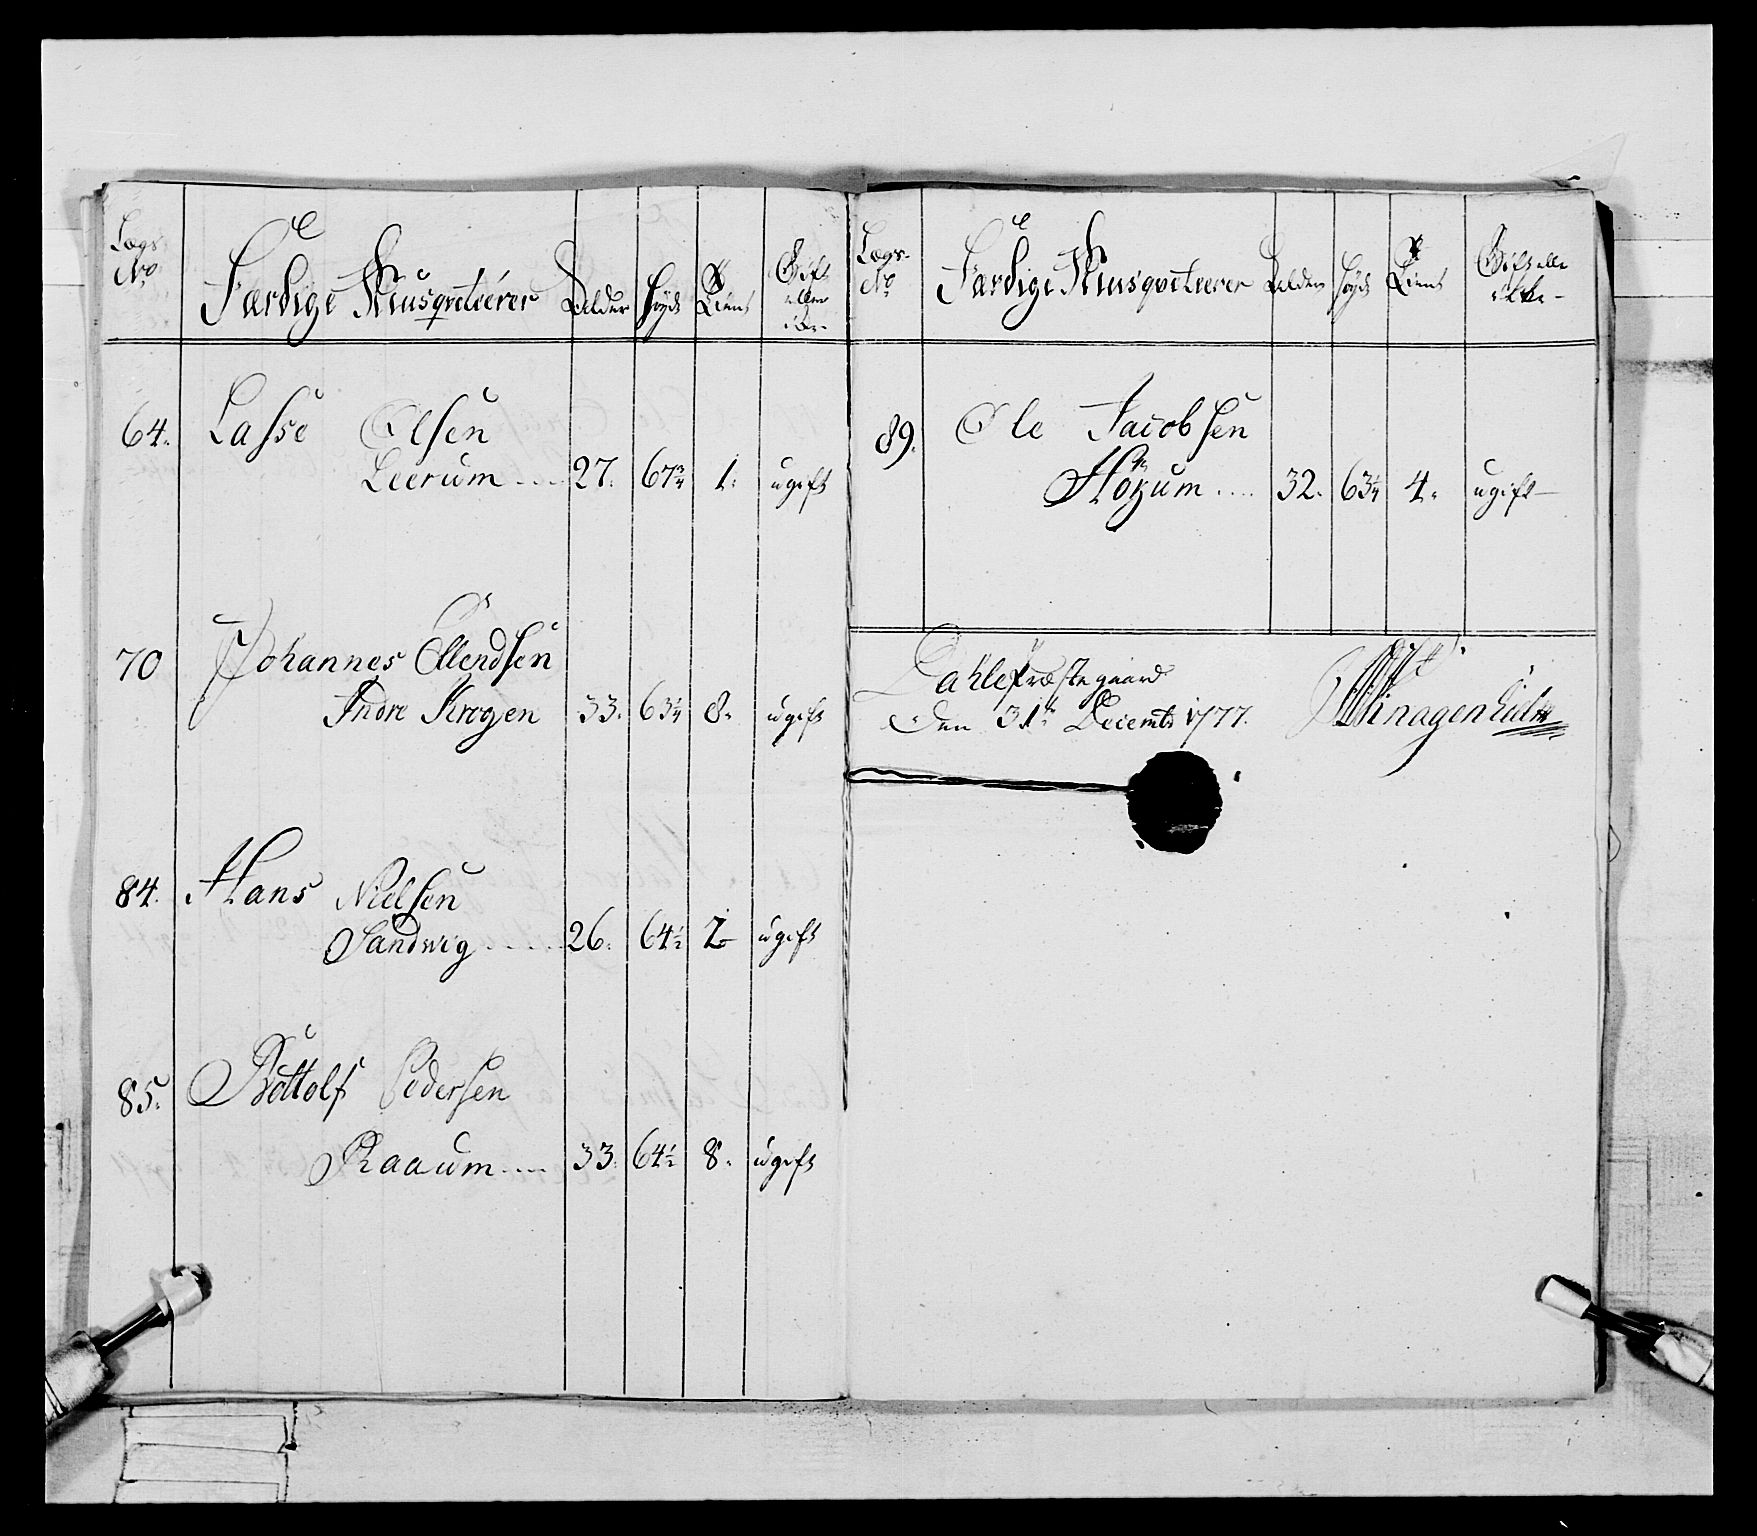 Lægs No
Færdige Musqveteerer
Aelder
Høyde
Tient
Gift eller ikke
64. Lasse Olsen
Leerum .... 27. 67¾ 1. ugift
70 Johannes Ellendsen
Indre Krogen 33. 63¼ 8. ugift
84. Hans Nielsen
Sandwig .... 26. 64½ 2 ugift
85. Bottolf Pedersen
Raaum .... 33. 64½ 8. ugift
Lægs No
Færdige Musqveteerer
Aelder
Høyde
Tient
Gift eller ikke
89. Ole Jacobsen
Höyum .... 32. 63¼ 4. ugift
Dahle Præstegaard
Den 31te Decembr 1777.